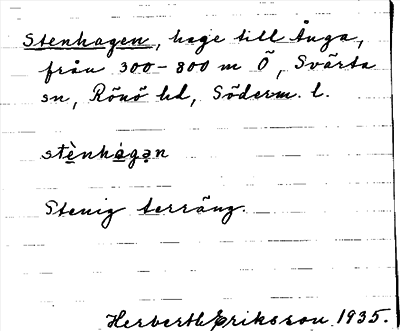 Stenhagen, hage till Ånga,
från 300-800 m Ö, Svärta
sn, Rönö hd, Söderm. l.
stè̱nhá̱gə̣n
Stenig terräng.
Herbert Eriksson 1935.